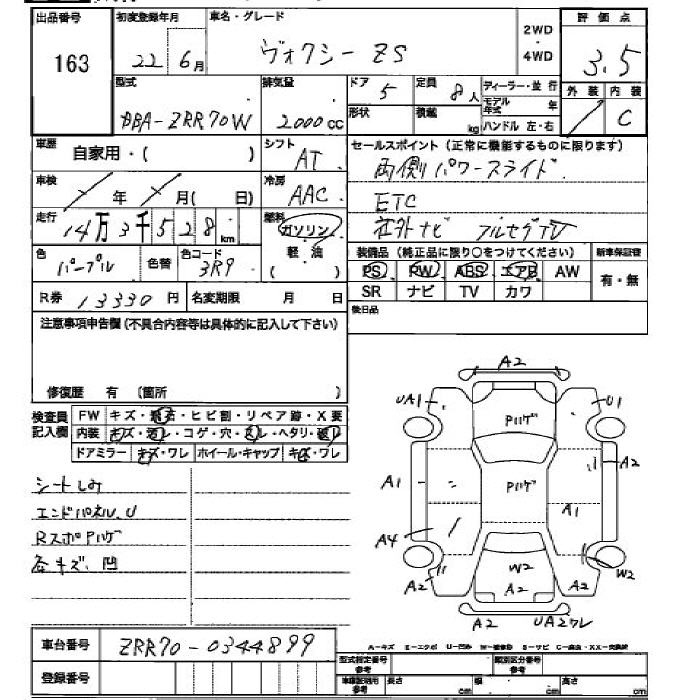 出品番号 初度登録年月 車名・グレード 2WD・4WD 評価点
163 22年6月 ヴォクシー ZS 3.5
型式 排気量 ドア 5 定員 8人 ディーラー・並行 外装 内装
DBA-ZRR70W 2000cc 形状 積載 kg モデル年式 年 ハンドル 左・右 / C
車歴 自家用・( ) シフト AT セールスポイント(正常に機能するものに限ります)
両側パワースライド
車検 / 年 / 月( 日) 冷房 AAC ETC
走行 14万3千528km 燃料 ガソリン・軽油( ) 社外ナビ フルセグTV
色 パープル 色替 色コード 3R9
装備品(純正品に限り○をつけてください) 新車保証書
PS PW ABS エアB AW 有・無
R券 13330円 名変期限 月 日 SR ナビ TV カワ
注意事項申告欄(不具合内容等は具体的に記入して下さい) 後日品
修復歴 有 (箇所 )
検査員記入欄 FW キズ・飛石・ヒビ割・リペア跡・X要
内装 キズ・汚レ・コゲ・穴・スレ・ヘタリ・破レ
ドアミラー キズ・ワレ ホイール・キャップ キズ・ワレ
シートしみ
エンドパネル、U
RスポPハゲ
各キズ、凹
A2
UA1 U1
Pハゲ
A2
A1 Pハゲ A1
A4
W2 W2
A2 A2 A2
A2 UA2ワレ
車台番号 ZRR70-0344899
A-キズ E-エクボ U-凹み W-補修跡 S-サビ C-腐蝕・XX-交換済
登録番号 型式指定番号 参考 類別区分番号 参考
車庫証明用 参考 長さ cm 幅 cm 高さ cm